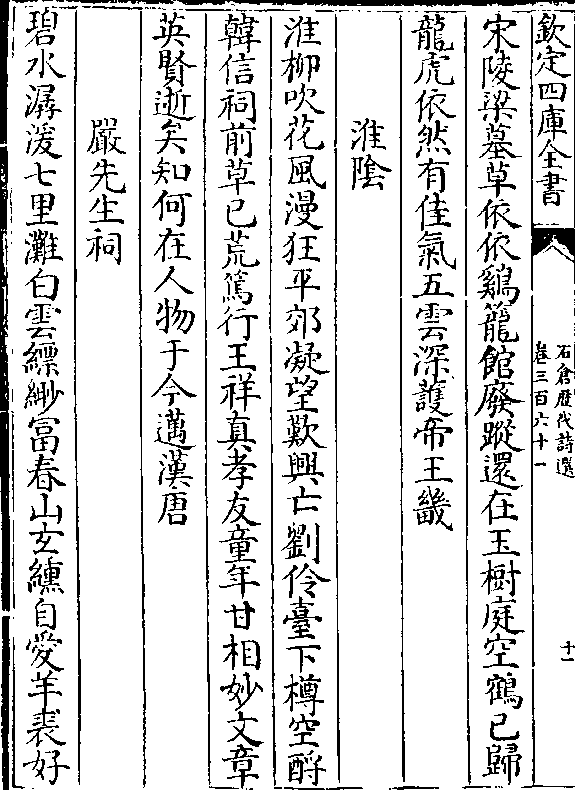 欽定四庫全書
石倉歴代詩選
卷三百六十一
十一
宋陵梁墓草依依鷄籠館廢蹤還在玉樹庭空鶴已歸
龍虎依然有佳氣五雲深護帝王畿
淮陰
淮柳吹花風漫狂平郊凝望歎興亡劉伶臺下樽空酹
韓信祠前草已荒篤行王祥真孝友童年甘相妙文章
英賢逝矣知何在人物于今邁漢唐
嚴先生祠
碧水潺湲七里灘白雲縹緲富春山玄纁自愛羊裘好